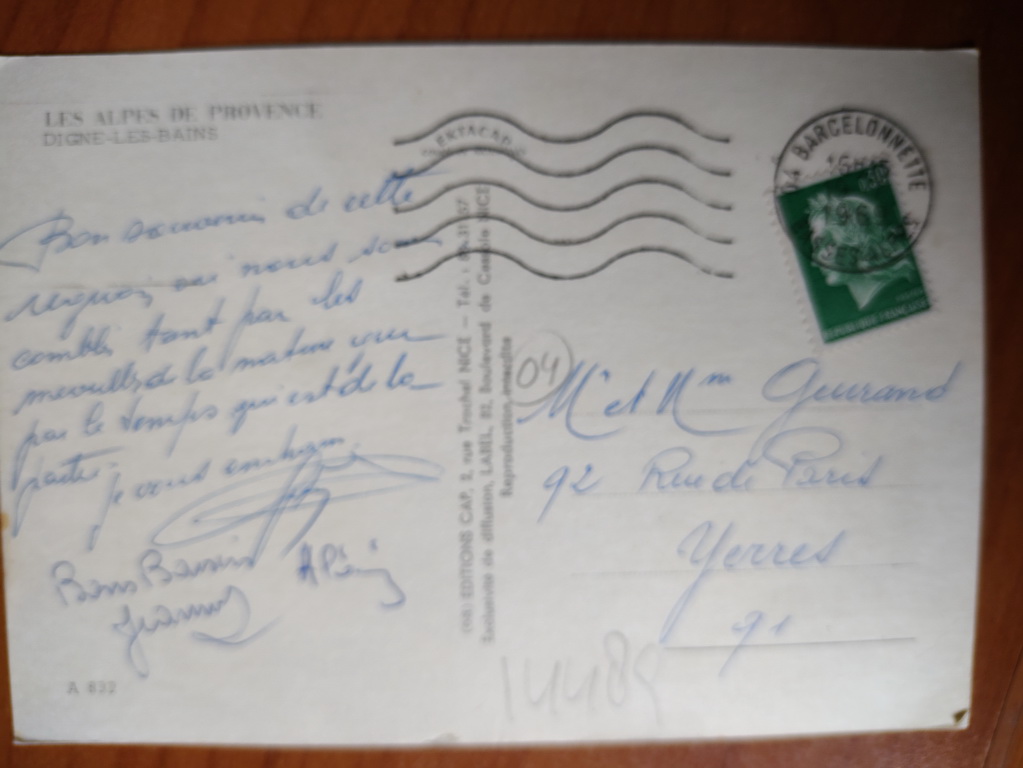 LES ALPES DE PROVENCE
DIGNE-LES-BAINS
Bon souvenir de cette
region, ou nous som
combles tant par les
merveilles de la nature que
par le temps qui est de la
partie.
je vous embrasse.
Bons Baisers
A 632
(06) EDITIONS CAP, 2, rue Trachel NICE - Tél. :
Exclusivité de diffusion, LABEL, 82, Boulevard de Cessole NICE
Reproduction interdite
04 BARCELONNETTE
0,30
REPUBLIQUE FRANCAISE
04
Mr et Mme Guirand
92 Rue de Paris
Yerres
91